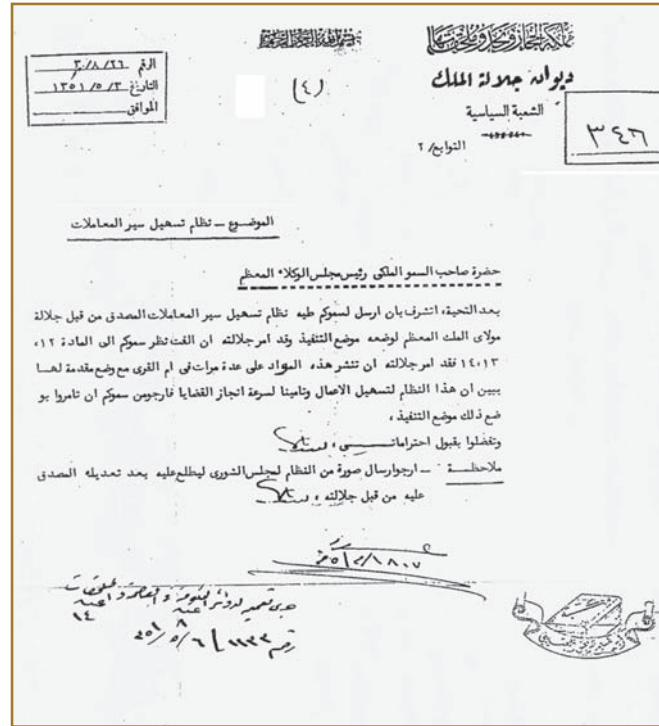 مملكة الحجاز ونجد وملحقاتها
ديوان جلالة الملك
الشعبة السياسية
التوابع/ ٢
٣٤٦
(٤)
الرقم ٣٠/٨/٢٦
التاريخ ١٣٥١/٥/٣
الموافق
الموضوع ــ نظام تسهيل سير المعاملات
حضرة صاحب السمو الملكى رئيس مجلس الوكلاء المعظم
بعد التحية، اتشرف بان ارسل لسموكم طيه نظام تسهيل سير المعاملات المصدق من قبل جلالة
مولاى الملك المعظم لوضعه موضع التنفيذ وقد امر جلالته ان الفت نظر سموكم الى المادة ١٢،
١٤،١٣ فقد امر جلالته ان تنشر هذه المواد على عدة مرات فى ام القرى مع وضع مقدمة لهــا
يبين ان هذا النظام لتسهيل الاعمال وتامينا لسرعة انجاز القضايا فارجو من سموكم ان تامروا بو
ضع ذلك موضع التنفيذ،
وتفضلوا بقبول احتراماتــــى،
ملاحظــة ــ ارجو ارسال صورة من النظام لمجلس الشورى ليطلع عليه بعد تعديله المصدق
عليه من قبل جلالته،